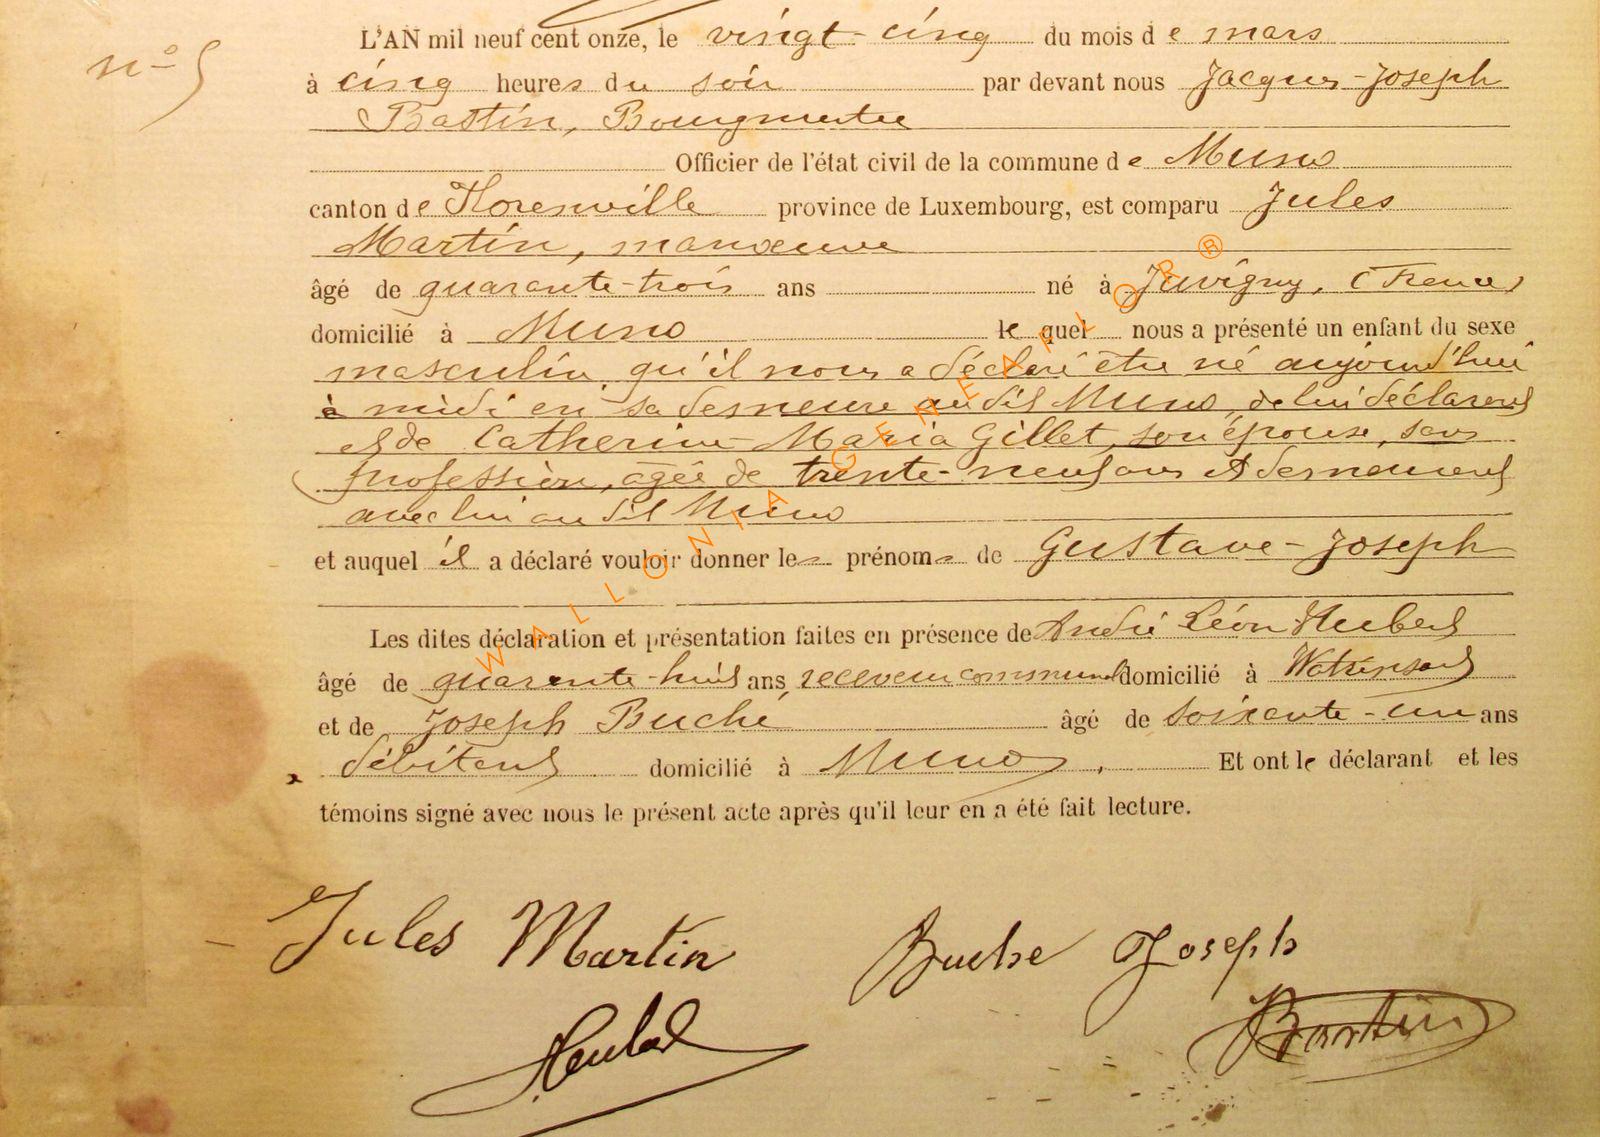 n° 5
L'AN mil neuf cent onze, le vingt-cinq du mois de mars
à cinq heures du soir par devant nous Jacques-Joseph
Bastin, Bourgmestre
Officier de l'état civil de la commune de Muno
canton de Florenville province de Luxembourg, est comparu Jules
Martin, manœuvre
âgé de quarante-trois ans né à Juvigny, (France)
domicilié à Muno lequel nous a présenté un enfant du sexe
masculin, qu'il nous a déclaré être né aujourd'hui
à midi en sa demeure au dit Muno, de lui déclarant
et de Catherine-Maria Gillet, son épouse, sans
profession, agée de trente-neuf ans et demeurant
avec lui au dit Muno
et auquel il a déclaré vouloir donner les prénoms de Gustave-Joseph
Les dites déclaration et présentation faites en présence de André Léon Hubert
âgé de quarante-huit ans, receveur communal domicilié à Watrinsart
et de Joseph Buché âgé de soixante-un ans
débitant domicilié à Muno. Et ont le déclarant et les
témoins signé avec nous le présent acte après qu'il leur en a été fait lecture.
Jules Martin Buche Joseph
Bastin
WALLONIA GENEAFLOR ®